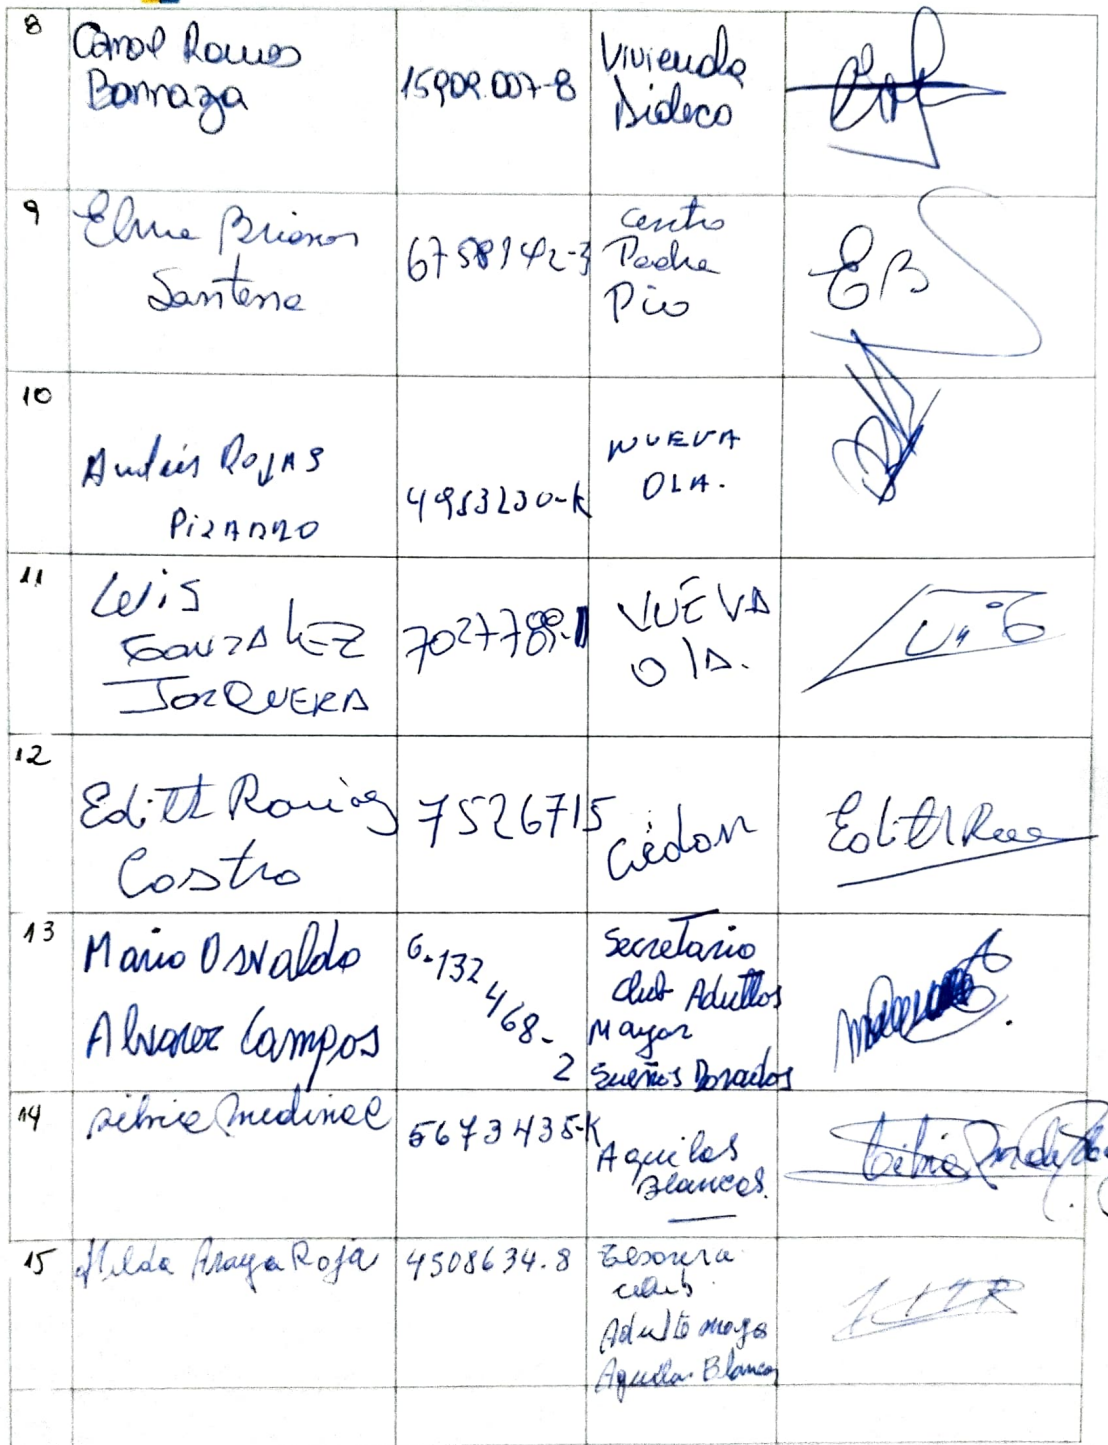 8
Carol Ramos
Barraza
15909.007-8
Vivienda
Dideco
9
Elina Briones
Santana
6758142-3
Centro
Padre
Pio
EB
10
Andrés Rojas
Pizarro
4953230-K
NUEVA
OLA.
11
Luis
GONZALEZ
JORQUERA
7027789-
NUEVA
OLA.
12
Edith
Castro
7526715
Edith
13
Mario Osvaldo
Alvarez Campos
6.132
468-
2
Secretario
Club Adultos
Mayor
Sueños Dorados
14
Silvia Medina C
5673435-K
Aguilas
Blancas.
15
Hilda Araya Roja
4508634.8
Tesorera
club
Adulto mayo
Aguilas Blancas